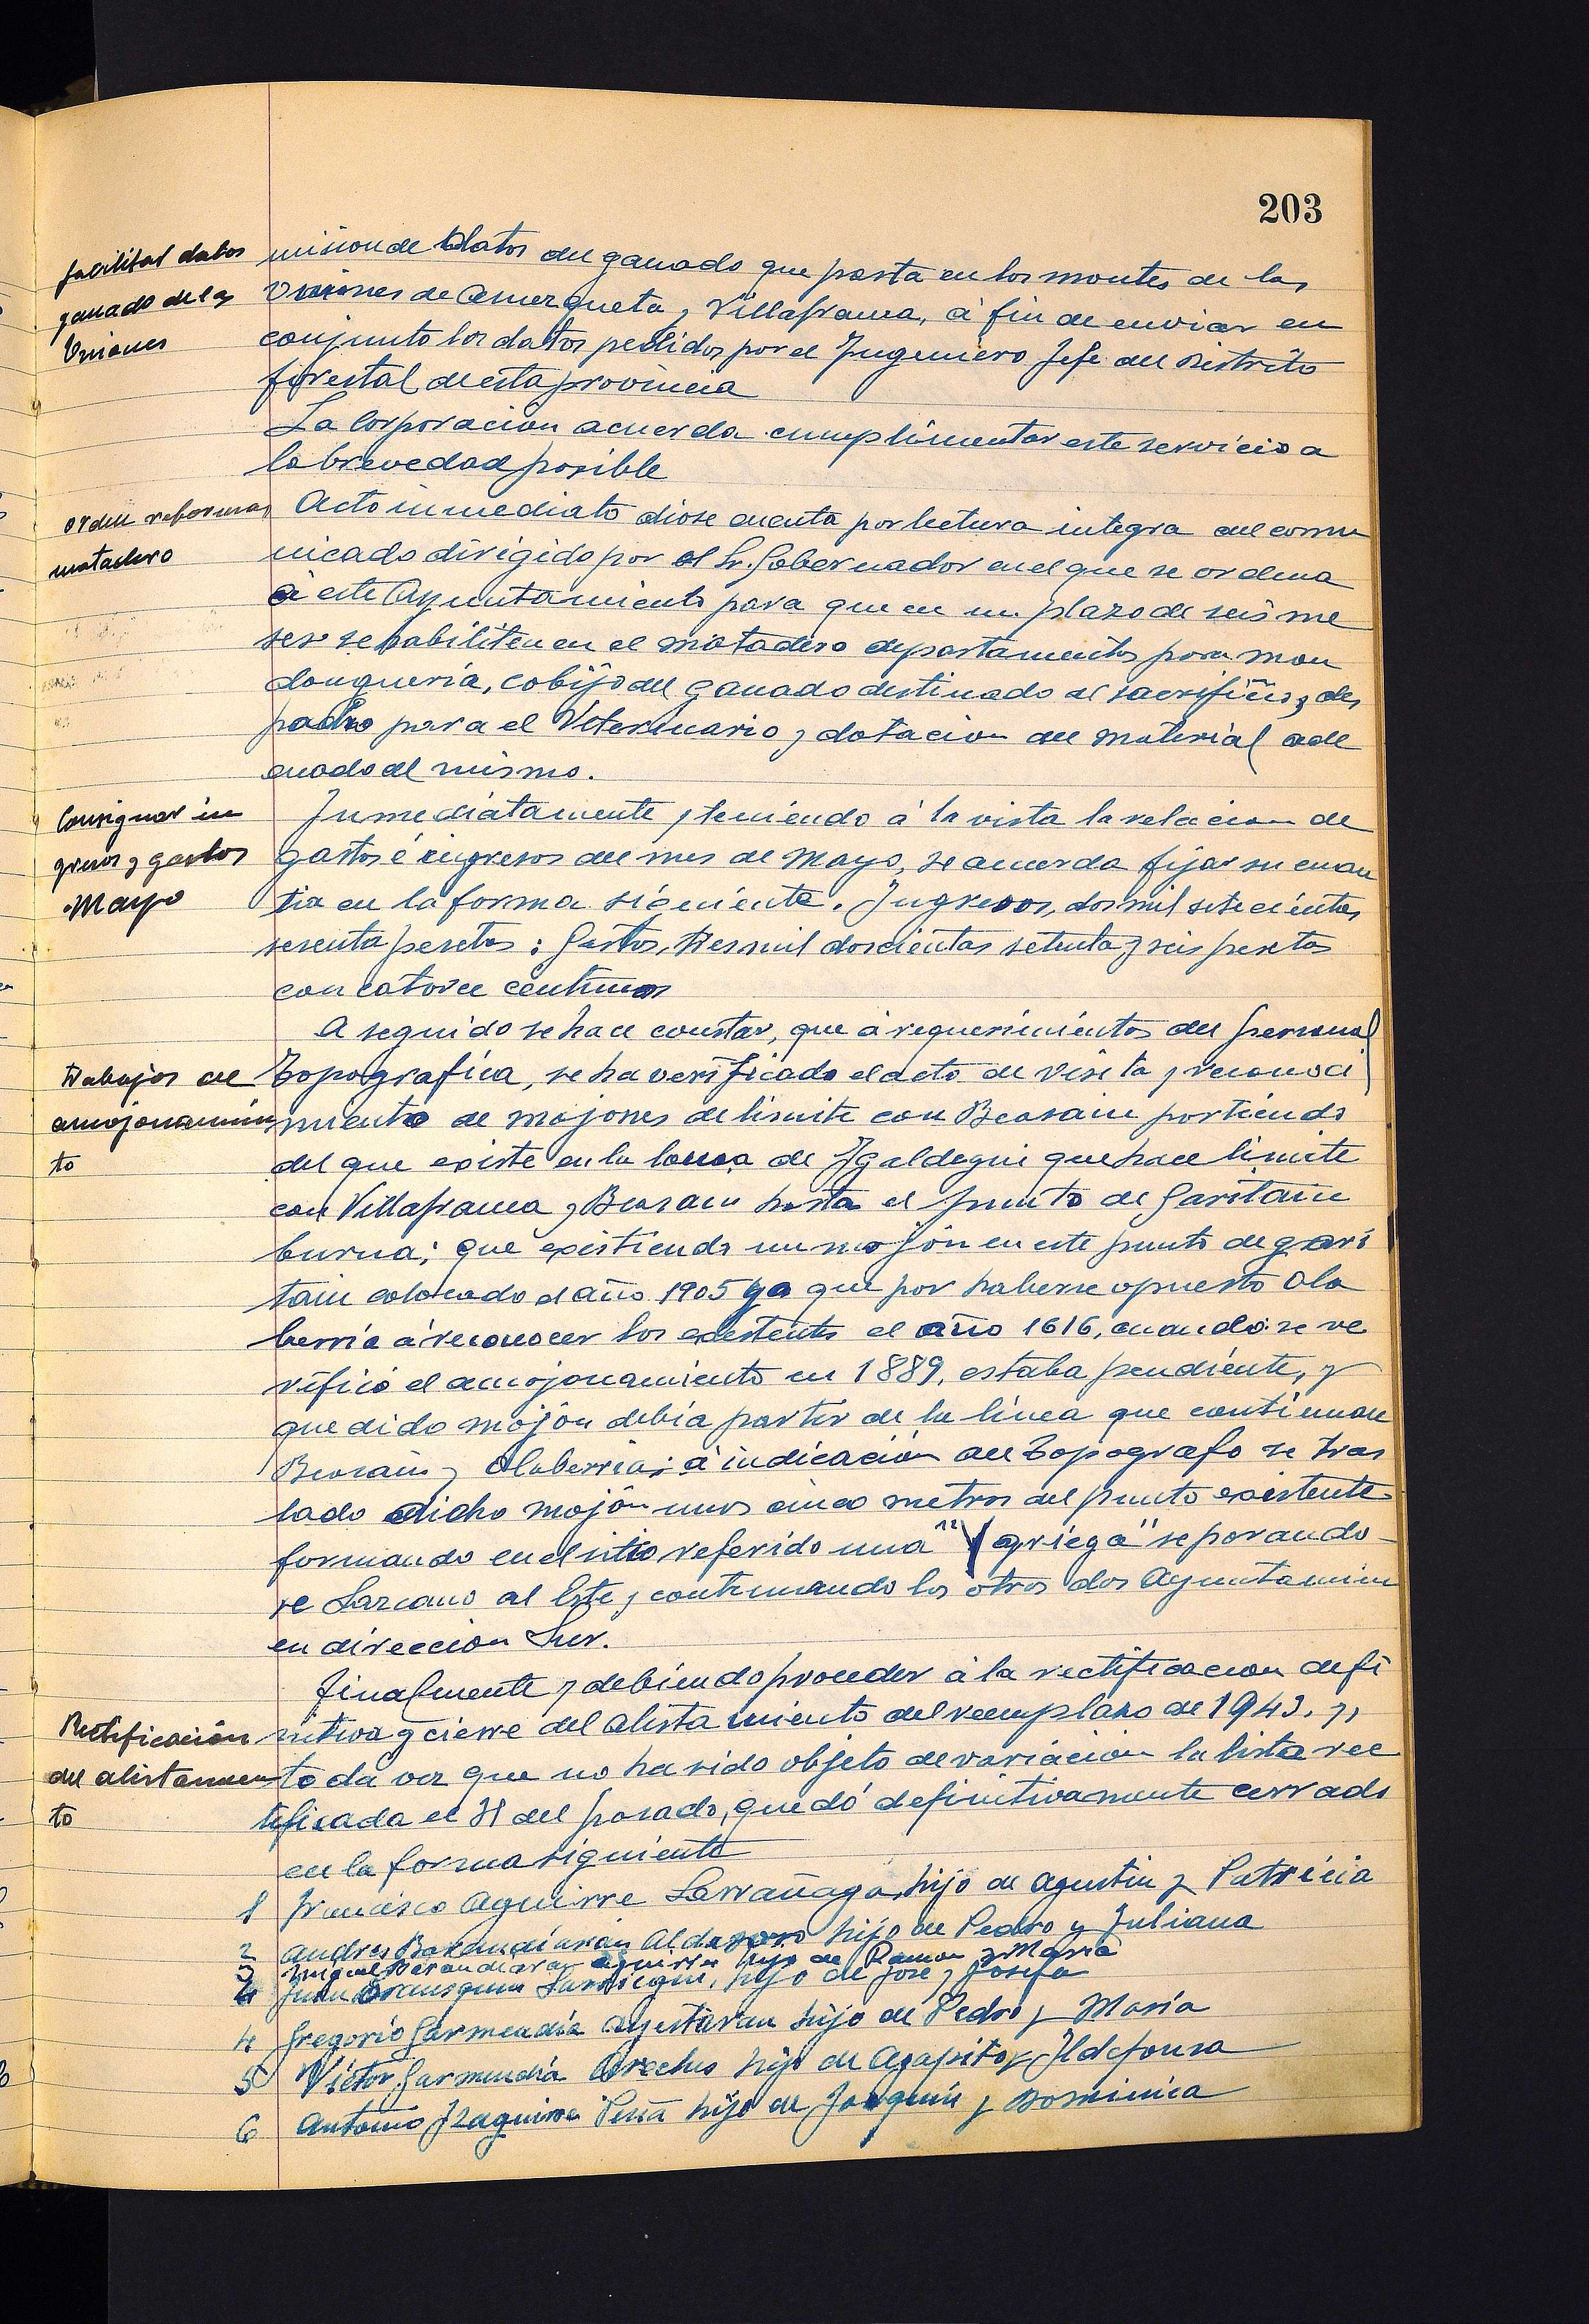 203
facilitar datos
ganado de las
Uniones
misionde datos del ganado que pasta en los montes de las
Uniones de Amezqueta y Villafranca, á fin de enviar en
conjunto los datos pedidos por el Ingeniero Jefe del Distrito
forestal de esta provincia
La Corporacion acuerda cumplimentar este servicio a
la brevedad posible
orden reformas
matadero
Acto inmediato diose cuenta por lectura integra del comu
nicado dirigido por el Sr. Gobernador en el que se ordena
á este Ayuntamiento para que en un plazo de seis me
ses se habiliten en el matadero departamentos para mon
donguería, cobijo del ganado destinado al sacrificio, y des
pacho para el Veterinario y dotacion del material ade
cuado al mismo.
Consignar in
gresos y gastos
Mayo
Inmediatamente y teniendo á la vista la relacion de
gastos é ingresos del mes de Mayo, se acuerda fijar su cuan
tia en la forma siguiente. Ingresos, dos mil setecientas
sesenta pesetas: Gastos, tres mil doscientas setenta y seis pesetas
con catorce centimos
Trabajos de
amojonamien
to
A seguido se hace constar, que á requerimientos del personal
Topografica, se ha verificado el acto de visita y reconoci
miento de mojones de limite con Beasain partiendo
del que existe en la loma de Igaldegui que hace limite
con Villafranca y Beasain hasta el punto de Garitain
burua; que existiendo un mojón en este punto de gari
tain colocado el año 1905 ya que por haberse opuesto Ola
berria á reconocer los existentes el año 1616, cuando se ve
rificó el amojonamiento en 1889, estaba pendiente, y
que dicho mojón debia partir de la línea que continuan
Beasain y Olaberria; á indicación del Topografo se tras
lado dicho mojón unos cinco metros del punto existente
formando en el sitio referido una "Y griega" separando-
se Lazcano al Este y continuando los otros dos Ayuntamien
en direccion Sur.
Rectificación
del alistamien
to
Finalmente y debiendo proceder á la rectificacion defi
nitiva y cierre del alistamiento del reemplazo de 1943, y,
toda vez que no ha sido objeto de variacion la lista rec
tificada el 31 del pasado, quedó definitivamente cerrado
en la forma siguiente
1 Francisco Aguirre Larrañaga, hijo de Agustin y Patricia
2 Andres Barandiarán Aldasoro hijo de Pedro y Juliana
3 Miguel Barandiaran Aguirre hijo de Ramon y Maria
Juan Erausquin Larrategui, hijo de José y Josefa
4 Gregorio Garmendia Ayestaran hijo de Pedro y Maria
5 Victor Garmendia Arocha hijo de Agapito y Ildefonsa
6 Antonio Izaguirre Peña hijo de Joaquin y Dominica